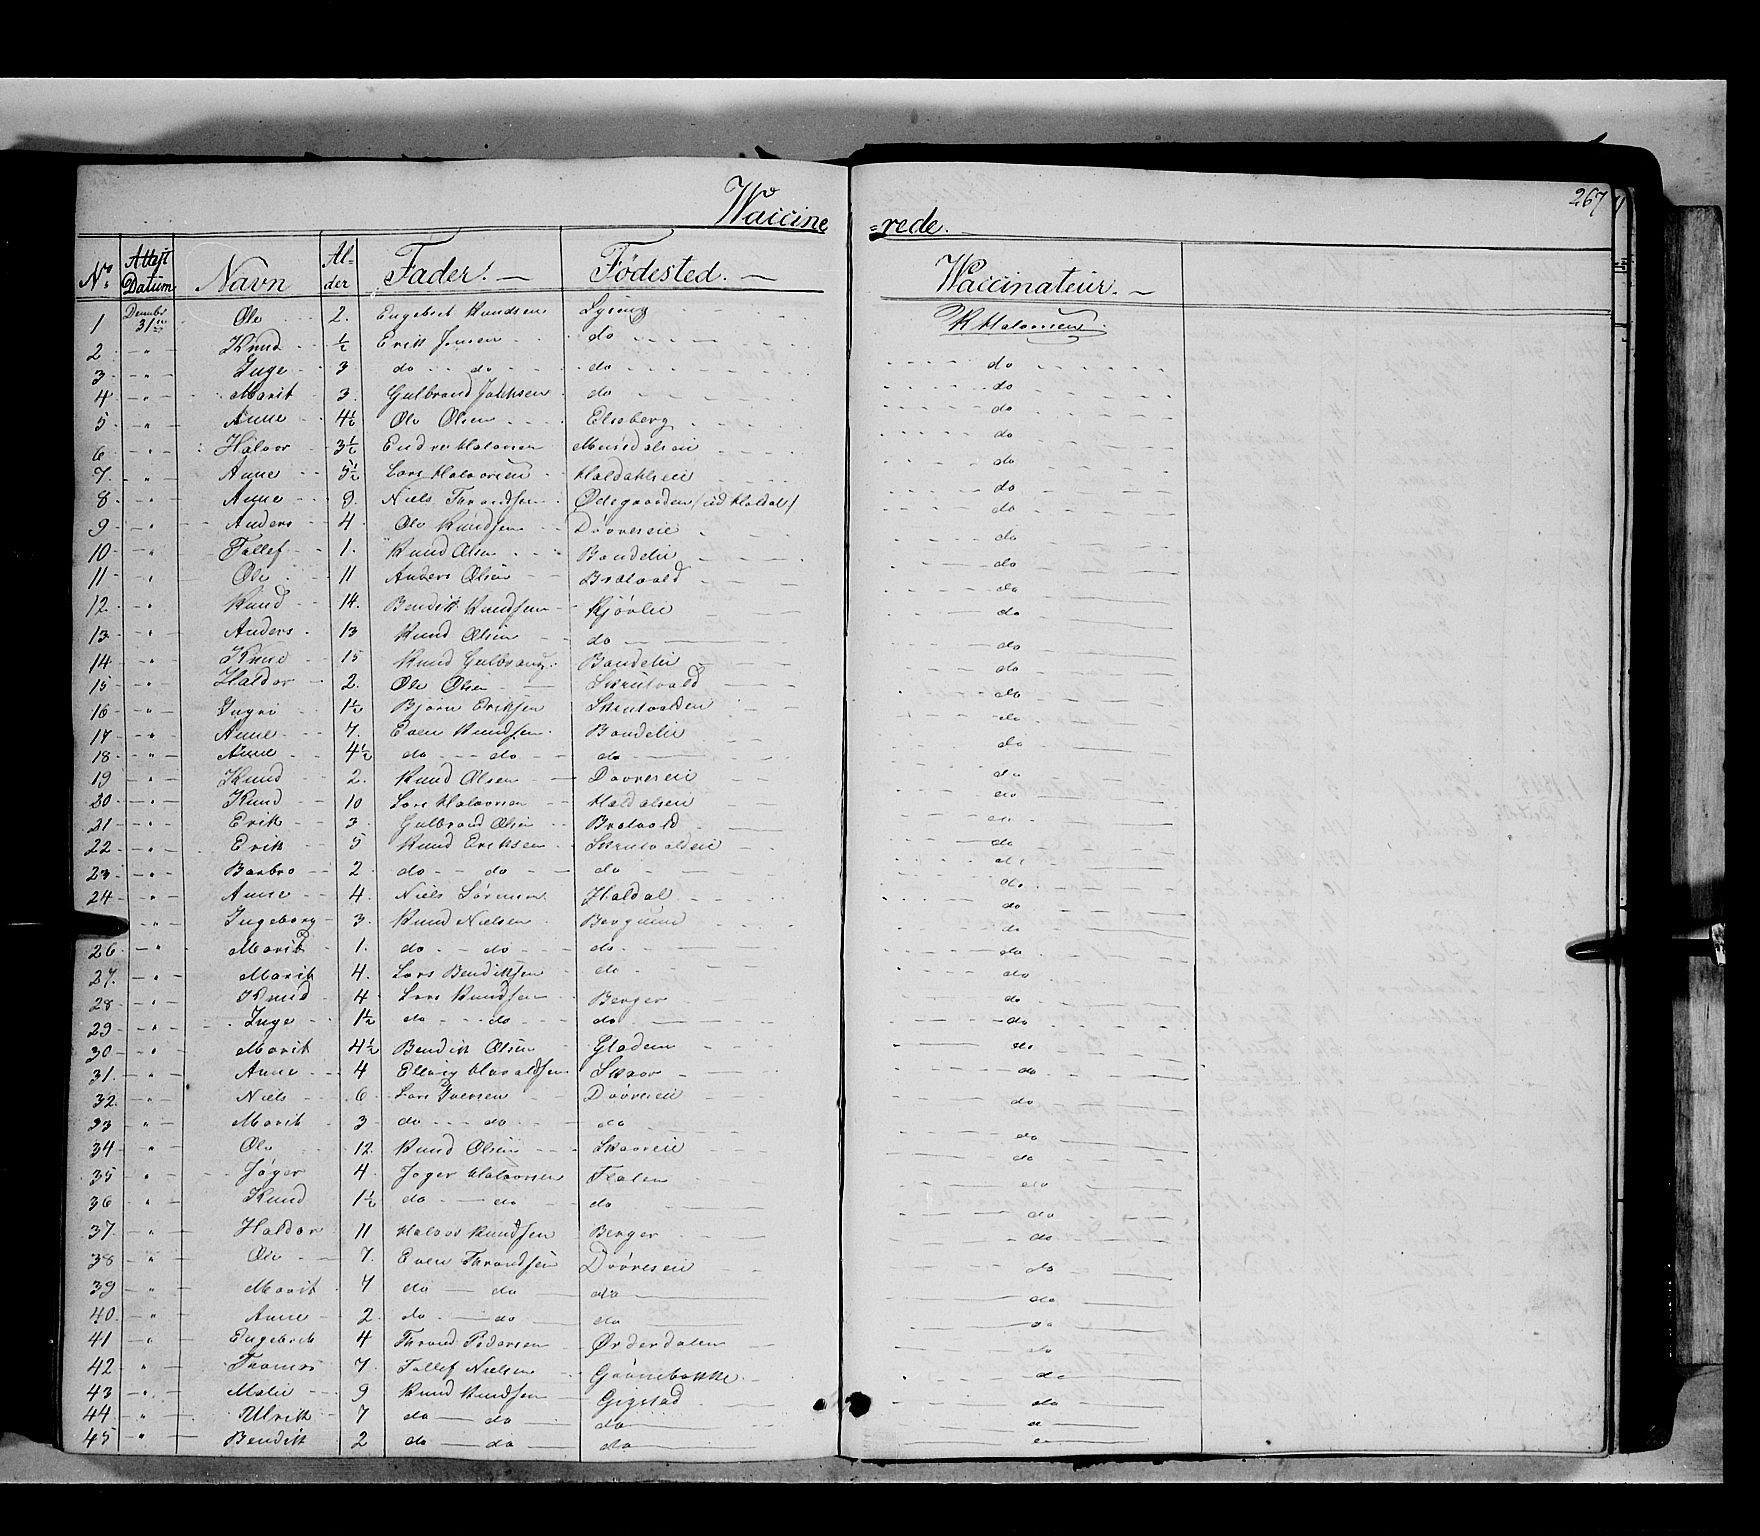 267
Waccine =rede.
No. Attest Datum Navn Al-der Fader. Fødested. Waccinateur.
1 Decembr 31te Ole 2. Engebret Knudsen Lysing K Halvorsen
2 - " - Knud ½ Erik Jensen do do
3 - " - Inge 3 do do do do
4 - " - Marit 3. Gulbrand do do
5 - " - Anne 4½ Ole Olsen Elseberg do
6 - " - Halvor 3½ Endre Halvorsen do
7 - " - Anne 5½ Lars Halvorsen Haldahlseie do
8 - " - Anne 9. Niels Throndsen Ødegaarden do
9 - " - Anders 4. Ole Knudsen Døvreseie do
10 - " - Tollef 1. Knud Olsen Bondelie do
11 - " - Ole 11 Anders Olsen Bratvold do
12 - " - Knud 14. Bendik Knudsen Kjøvlie do
13 - " - Anders 13 Knud Olsen do do
14 - " - Knud 15 Knud Gulbrands. Bondelie do
15 - " - Haldor 2. Ole Olsen Skrutvold do
16 - " - Ingri 1½ Bjørn Eriksen Skrutvolden do
17 - " - Anne 7. Even Knudsen Bondelie do
18 - " - Anne 4½ do do do do
19 - " - Knud 2. Knud Olsen Døvreseie do
20 - " - Knud 10 Lars Halvorsen Haldalseie do
21 - " - Erik 3. Gulbrand Olsen Bratvold do
22 - " - Erik 5 Knud Eriksen Skrutvolden do
23 - " - Barbro 2 do do do do
24 - " - Anne 4. Niels Sørensen Haldal do
- " - Ingeborg 3. Knud Nielsen Bergum do
26 - " - Marit 1. do do do do
27. - " - Marit 4. Lars Bendiksen do do
28 - " - Knud 4 Lars Knudsen Berger do
29 - " - Inge 1½ do do do do
30 - " - Marit 4½ Bendik Olsen Gladem do
31. - " - Anne 4 Ellevig Haraldsen Skaar do
32. - " - Niels 6 Lars Iversen Døvreseie do
33 - " - Marit 3 do do do do
34 - " - Ole 12. Knud Olsen Skaareie do
35 - " - Jøger 4. Jøger Halvorsen Flaten do
36 - " - Knud 1½ do do do do
37 - " - Haldor 11 Halvor Knudsen Berger do
38 - " - Ole 7. Even Throndsen Døvreseie do
39 - " - Marit 7 do do do do
40 - " - Anne 2. do do do do
41 - " - Engebrit 4 Thrond Pedersen Ørderdalen do
42 - " - Thomas 7 Tollef Nielsen do
43 - " - Malie 9 Knud Knudsen Gigstad do
44 - " - Ulrik 7 do do do "
45 - " - Bendik 2 do do do "